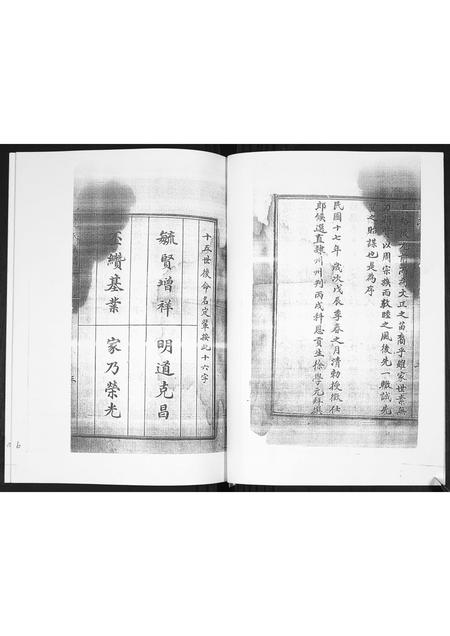 文正之苗裔乎雖家世素無
以周宗族而敦睦之風後先一轍誠先
之貽謀也是為序
民國十七年歲次戊辰季春之月清勅授徵仕
郎候選直隸州州判丙戌科恩貢生徐學元拜撰
十五世後命名定輩按此十六字
毓賢增祥 明道克昌
丕纘基業 家乃榮光